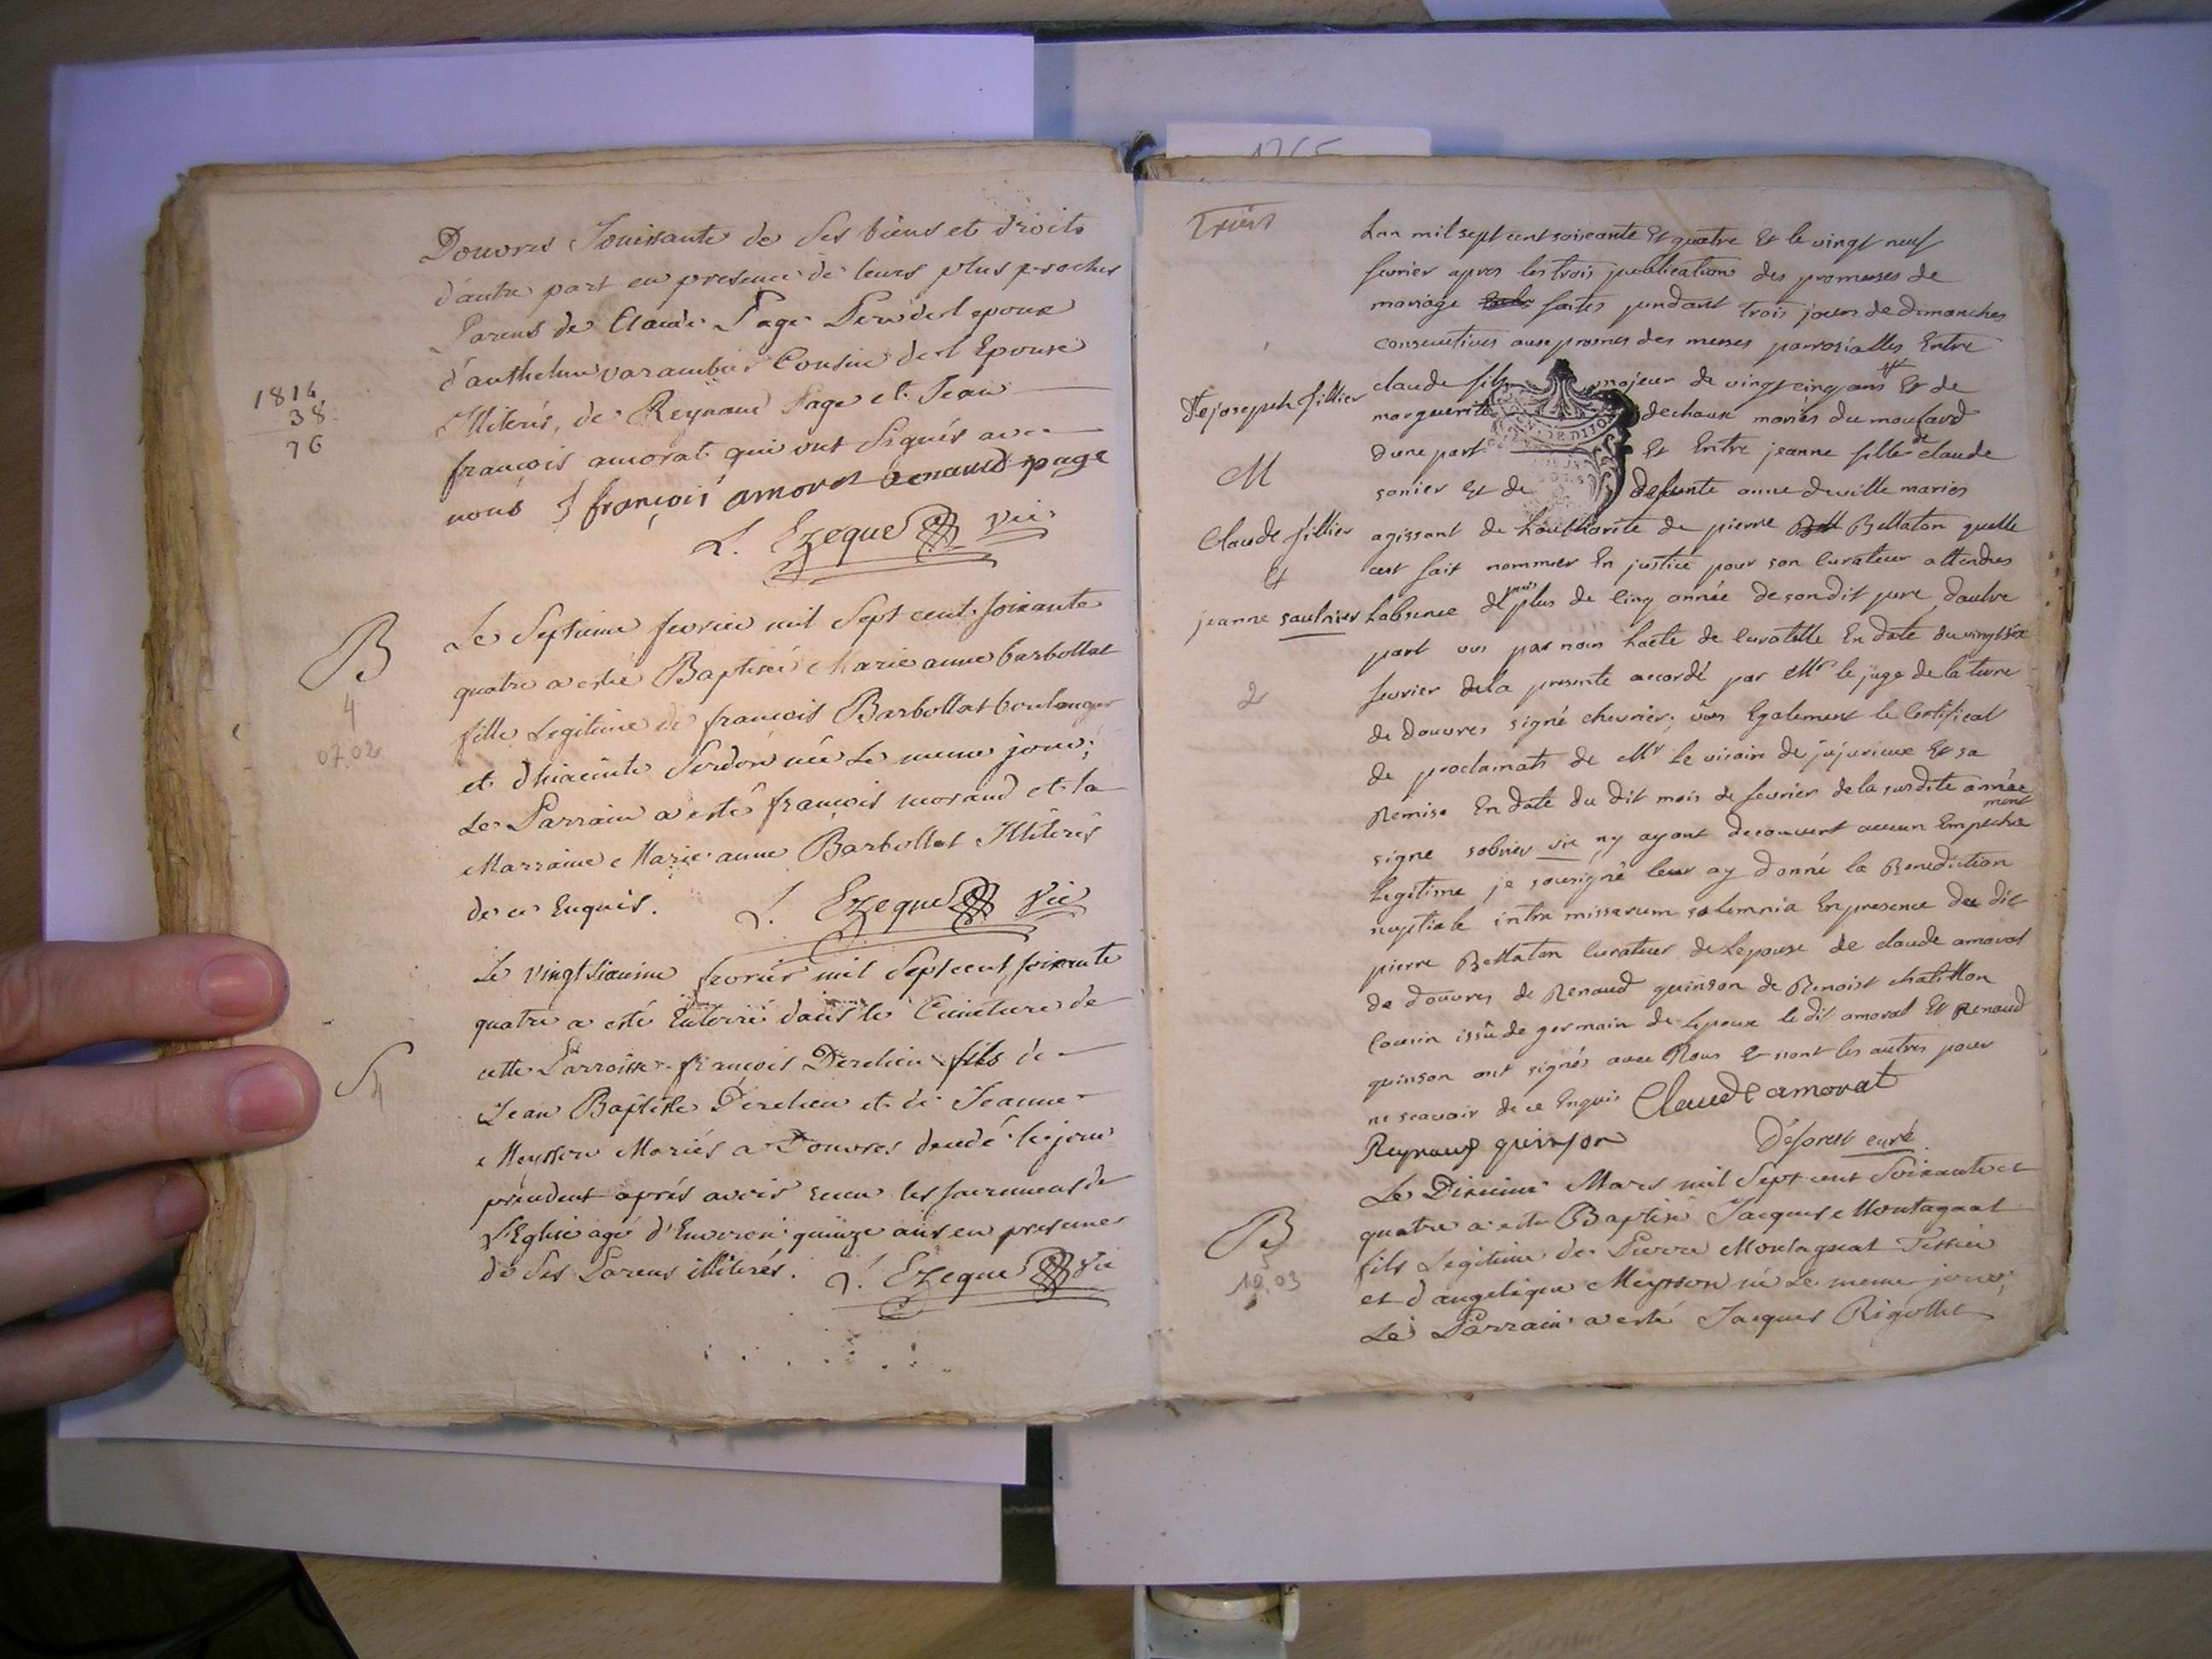 Douvres Jouissante de ses biens et droits
d'autre part en presence de leurs plus proches
Parens de Claude Page Pere de l'epoux
d'anthelme varambon Cousin de l'Epouse
Illiterés, de Reynaud Page et Jean
françois amorat qui ont signés avec
nous J françois amorat Renaud page
L. Ezeque vic
1814
38
76
B
4
07.02
Le Septieme fevrier mil Sept cent soixante
quatre a esté Baptisée Marie anne barbollat
fille Legitime de françois Barbollat boulanger
et d'hiacinte Serdon née Le meme jour;
Le Parrain a esté françois morand et la
Marraine Marie anne Barbollat Illiterés
de ce Enquis.
L. Ezeque Vic
S
4
Le vingt sixieme fevrier mil Sept cent soixante
quatre a esté Enterré dans le Cimetiere de
cette Parroisse françois Derelieu fils de
Jean Baptiste Derelieu et de Jeanne
Meysson Mariés a Douvres decedé le jour
précedent aprés avoir recu les sacremens de
l'Eglise agé d'Environ quinze ans en presence
de ses Parens illiterés. L. Ezeque vic
1765
Lan mil sept cent soixante Et quatre Et le vingt neuf
fevrier apres les trois publication des promesses de
mariage faites pendant trois jours de dimanches
consecutives aux prosnes des messes parrosialles Entre
claude fils majeur de vingt cinq ans Et de
marguerite dechaux mariés du moufard
dune part Et Entre jeanne fille de claude
sonier Et de defunte anne deville mariés
agissant de l'authorité de pierre Bellaton quelle
cest fait nommer En justice pour son curateur attendus
Labsence depuis plus de cinq année de son dit pere d'autre
part vus par nous l'acte de curatelle En date du vingt six
fevrier de la presente accordé par Mr le juge de la terre
de douvres signé chevrier; vus Egalement le Certificat
de proclamats de Mr Le vicair de jujurieux Et sa
Remise En date du dit mois de fevrier de la susdite année
signe sobrier vic ny ayant decouvert aucun Empeche
ment
Legitime je sousigné leur ay donné la Benediction
nuptiale intra missarum solemnia En presence du dit
pierre Bellaton curateur de Lepouse de claude amorat
de douvres de Renaud quinson de Benoist chatillon
Cousin issû de germain de Lepoux le dit amorat Et Renaud
quinson ont signés avec Nous Et nont les autres pour
ne scavoir de ce Enquis Claude amorat
Reynaud quinson Déforest curé
de joseph fillier
M
Claude fillier
Et
jeanne saulnier
2
B
5
10.03
Le Dixieme Mars mil Sept cent Soixante et
quatre a esté Baptisé Jacques Montagnat
fils Legitime de Pierre Montagnat Tessier
et d'angelique Meysson né Le meme jour;
Le Parrain a esté Jacques Rigollet